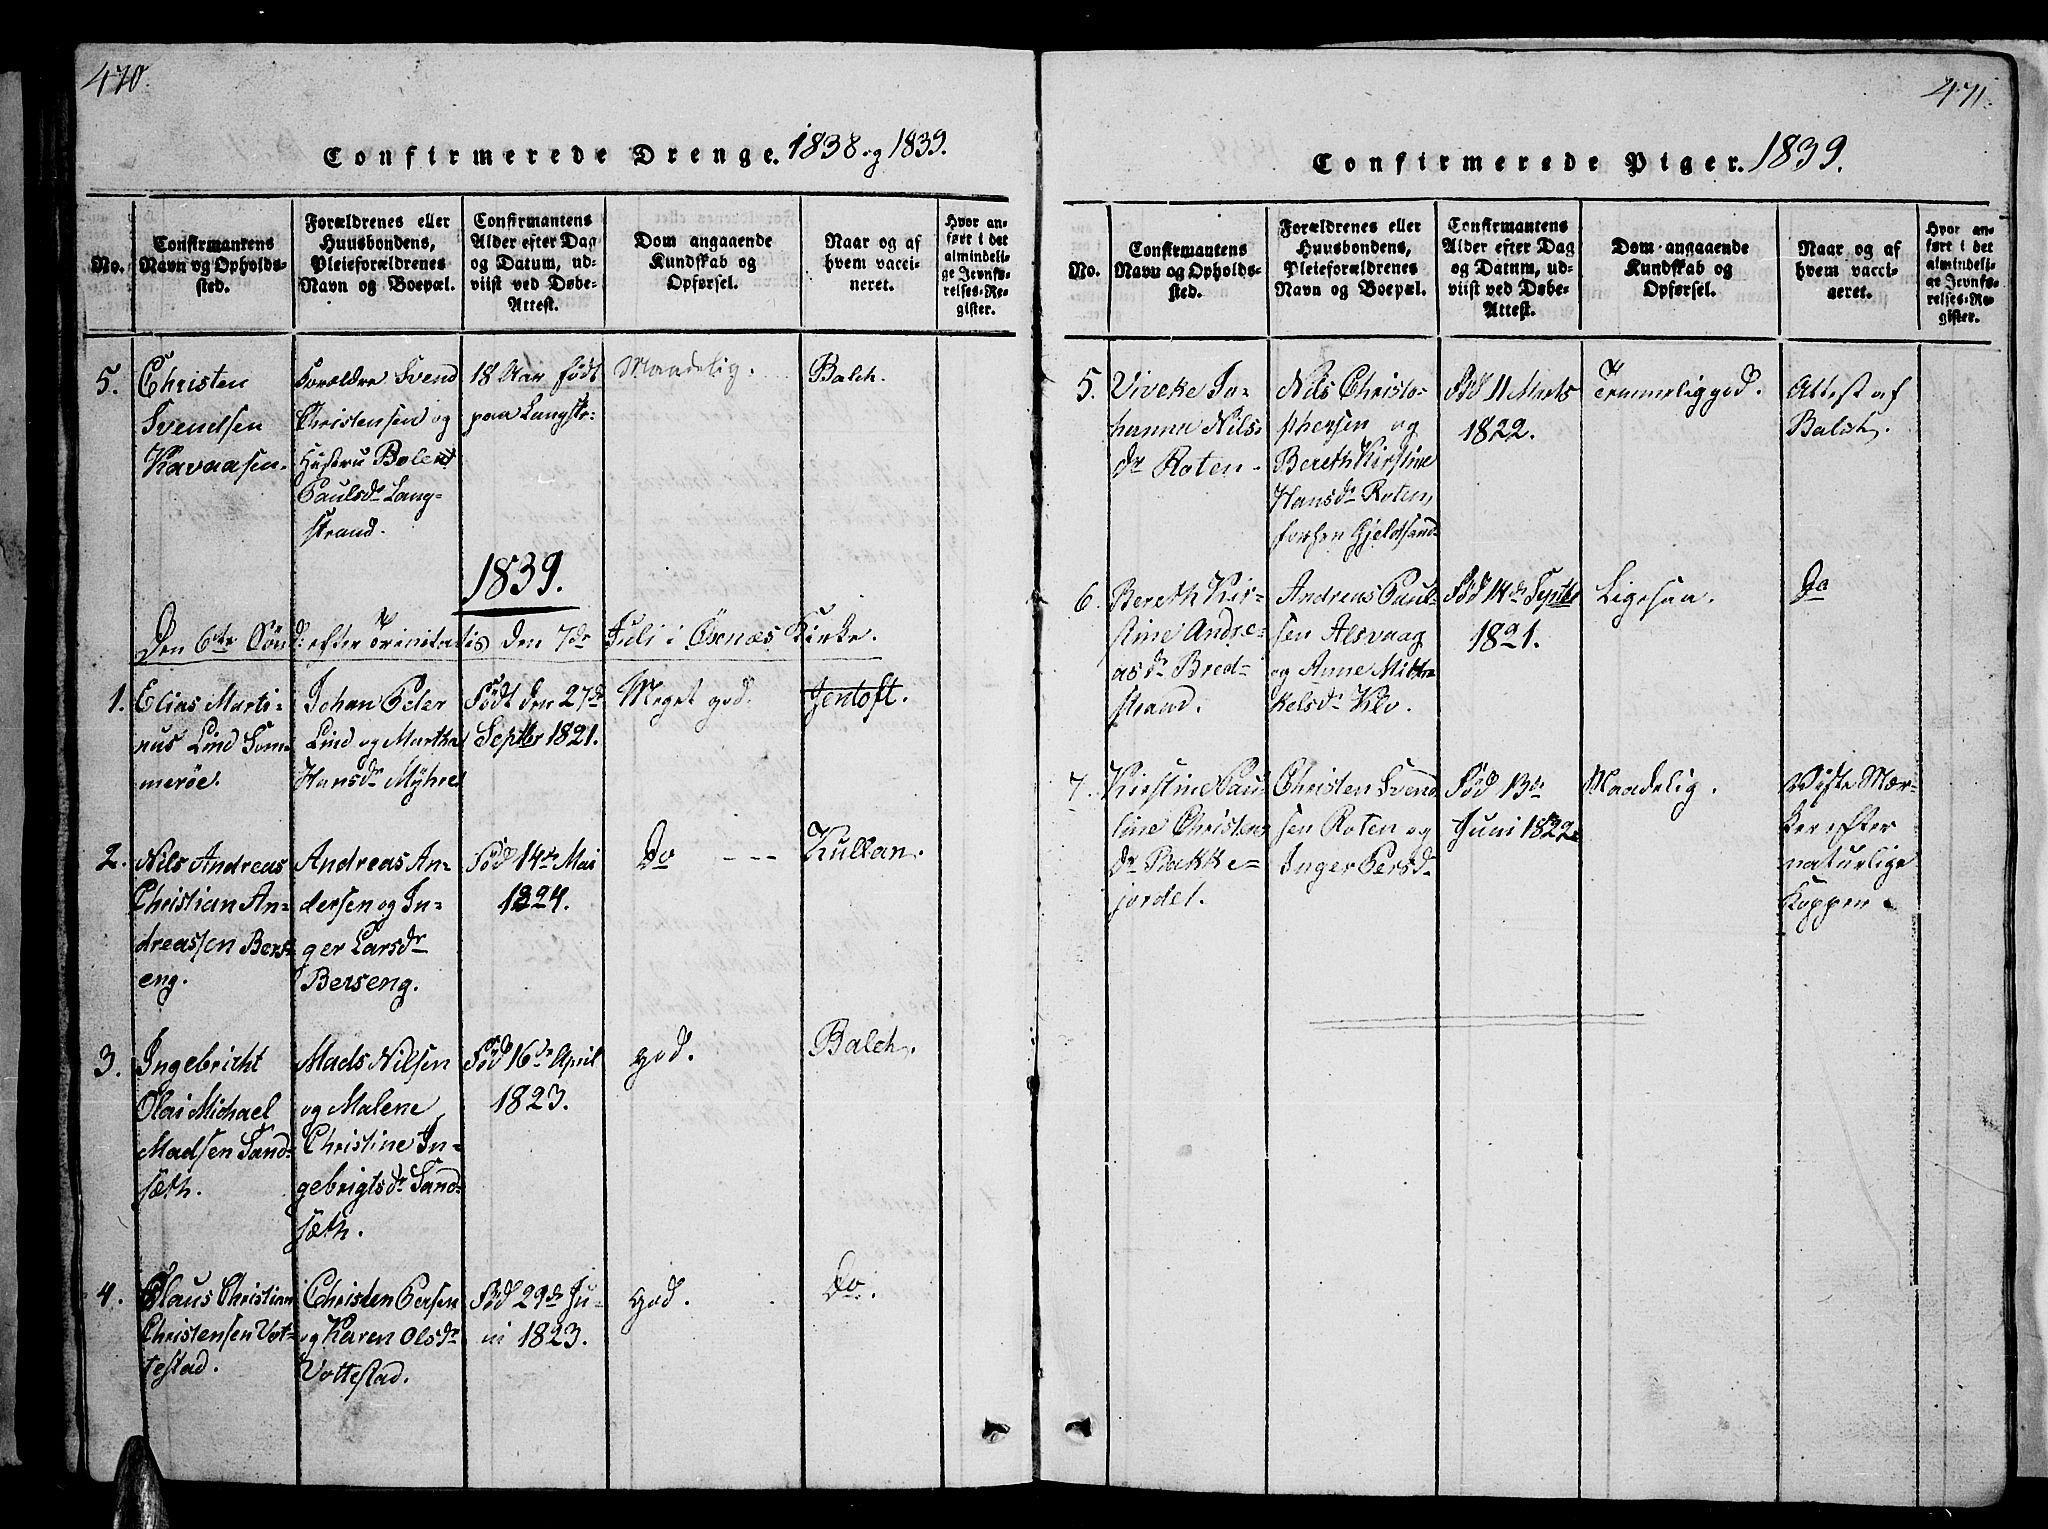 470.
Confirmerede Drenge. 1838 og 1839.
No.
Confirmantens
Navn og Opholds-
sted.
Forældrenes eller
Huusbondens,
Pleieforældrenes
Navn og Boepæl.
Confirmantens
Alder efter Dag
og Datum, ud-
viist ved Døbe-
Attest.
Dom angaaende
Kundskab og
Opførsel.
Naar og af
hvem vacci-
neret.
Hvor an-
ført i det
almindeli-
ge Jevnfø-
relses-Re-
gister.
5.
Christen
Svendsen
Kavaasen.
Forældre Svend
Christensen og
Hustru Bolet
Paulsdr Lang-
strand.
18 Aar født
paa Langstr:
Maadelig.
Balch.
1839.
Den 6te Sønd: efter Trinitatis den 7de Juli i Øxnæs Kirke.
1.
Elias Marti-
nus Lind Som-
merøe.
Johan Peter
Lind og Martha
Hansdr Mÿhre
Født den 27de
Septbr 1821.
Meget god.
Jentoft.
2.
Nils Andreas
Christian An-
dreassen Bers-
eng.
Andreas An-
dersen og In-
ger Larsdr
Berseng.
Fød 14de Mai
1824.
Do - - -
Kullan.
3.
Ingebricht
Olai Michael
Madsen Sand-
sæth.
Mads Nilsen
og Malene
Christine In-
gebrigtsdr Sand-
sæth.
Fød 16de April
1823.
god.
Balch.
4.
Claus Christian
Christensen Vot-
testad.
Christen Persen
og Karen Olsdr
Vottestad.
Fød 29de Ju-
ni 1823.
god.
Do.
471.
Confirmerede Piger. 1839.
No.
Confirmantens
Navn og Opholds-
sted.
Forældrenes eller
Huusbondens,
Pleieforældrenes
Navn og Boepæl.
Confirmantens
Alder efter Dag
og Datum, ud-
viist ved Døbe-
Attest.
Dom angaaende
Kundskab og
Opførsel.
Naar og af
hvem vacci-
neret.
Hvor an-
ført i det
almindeli-
ge Jevnfø-
relses-Re-
gister.
5.
Viveke Jo-
hanna Nils-
dr Roten
Nils Christo-
phersen og
Bereth Kirstine
Hansdr Roten,
Gjeldsand
Fød 11 Marts
1822.
Temmelig god.
Attest af
Balch.
6.
Bereth Kir-
stine Andre-
asdr Bred-
strand.
Andreas Paul-
sen Alsvaag
og Anne Mitt-
kelsdr Klo.
Fød 14de Septbr
1821.
Ligesaa.
Do
7.
Kirstine Pau-
line Christens-
dr Bakke-
jordet.
Christen Svend-
sen Roten og
Inger Persdr
Fød 13de
Juni 1822
Maadelig.
Viste Mær-
ker efter
naturlige
Kopper.